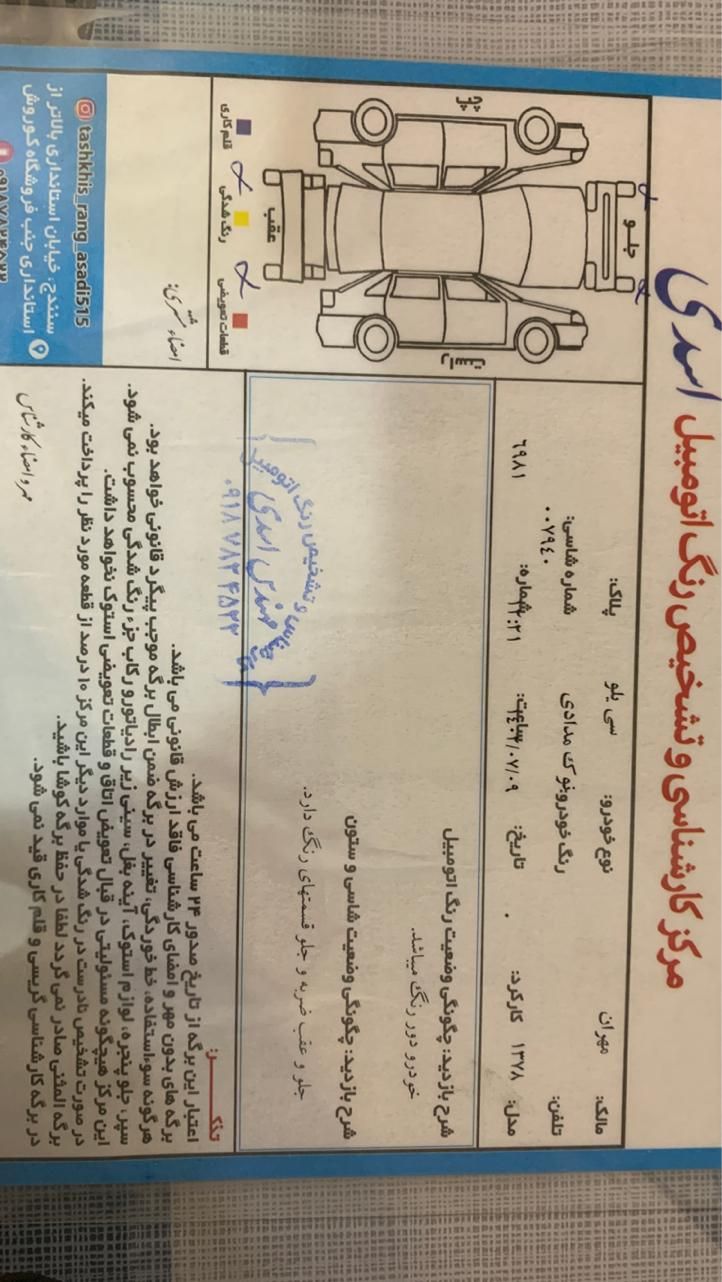 مرکز کارشناسی و تشخیص رنگ اتومبیل اسدی
مالک: مهران
نوع خودرو: سی یلو
پلاک:
تلفن:
رنگ خودرو نوک مدادی
شماره شاسی: ۰۰۷۹۴۰
مدل: ۱۳۷۸
کارکرد: ۰
تاریخ: ۰۷/۰۹
ساعت: :۲۱
شماره: ۶۹۸۱
شرح بازدید: چگونگی وضعیت رنگ اتومبیل
خودرو دور رنگ میباشد.
شرح بازدید: چگونگی وضعیت شاسی و ستون
جلو و عقب ضربه و جلو قسمتهای رنگ دارد.
تشخیص رنگ اتومبیل
مهندس اسدی
۰۹۱۸ ۷۸۲ ۴۵۲۲
جلو
چپ
راست
عقب
قلم کاری
رنگ شدگی
قطعات تعویضی
تذکر:
اعتبار این برگه از تاریخ صدور ۲۴ ساعت می باشد.
برگه های بدون مهر و امضای کارشناسی فاقد ارزش قانونی می باشد.
هرگونه سوءاستفاده، خط خوردگی، تغییر در برگه ضمن ابطال برگه موجب پیگرد قانونی خواهد بود.
سپر، جلو پنجره، لوازم استوک، آینه بغل، سینی زیر رادیاتور و رکاب جزء رنگ شدگی محسوب نمی شود.
این مرکز هیچگونه مسئولیتی در قبال تعویض اتاق و قطعات تعویضی استوک نخواهد داشت.
در صورت تشخیص نادرست در رنگ شدگی یا موارد دیگر این مرکز ۱۰ درصد از قطعه مورد نظر را پرداخت میکند.
برگه المثنی صادر نمی گردد لطفا در حفظ برگه کوشا باشید.
در برگه کارشناسی گریسی و قلم کاری قید نمی شود.
مهر و امضاء کارشناس
امضاء مشتری:
tashkhis_rang_asadi515
سنندج، خیابان استانداری بالاتر از
استانداری جنب فروشگاه کوروش